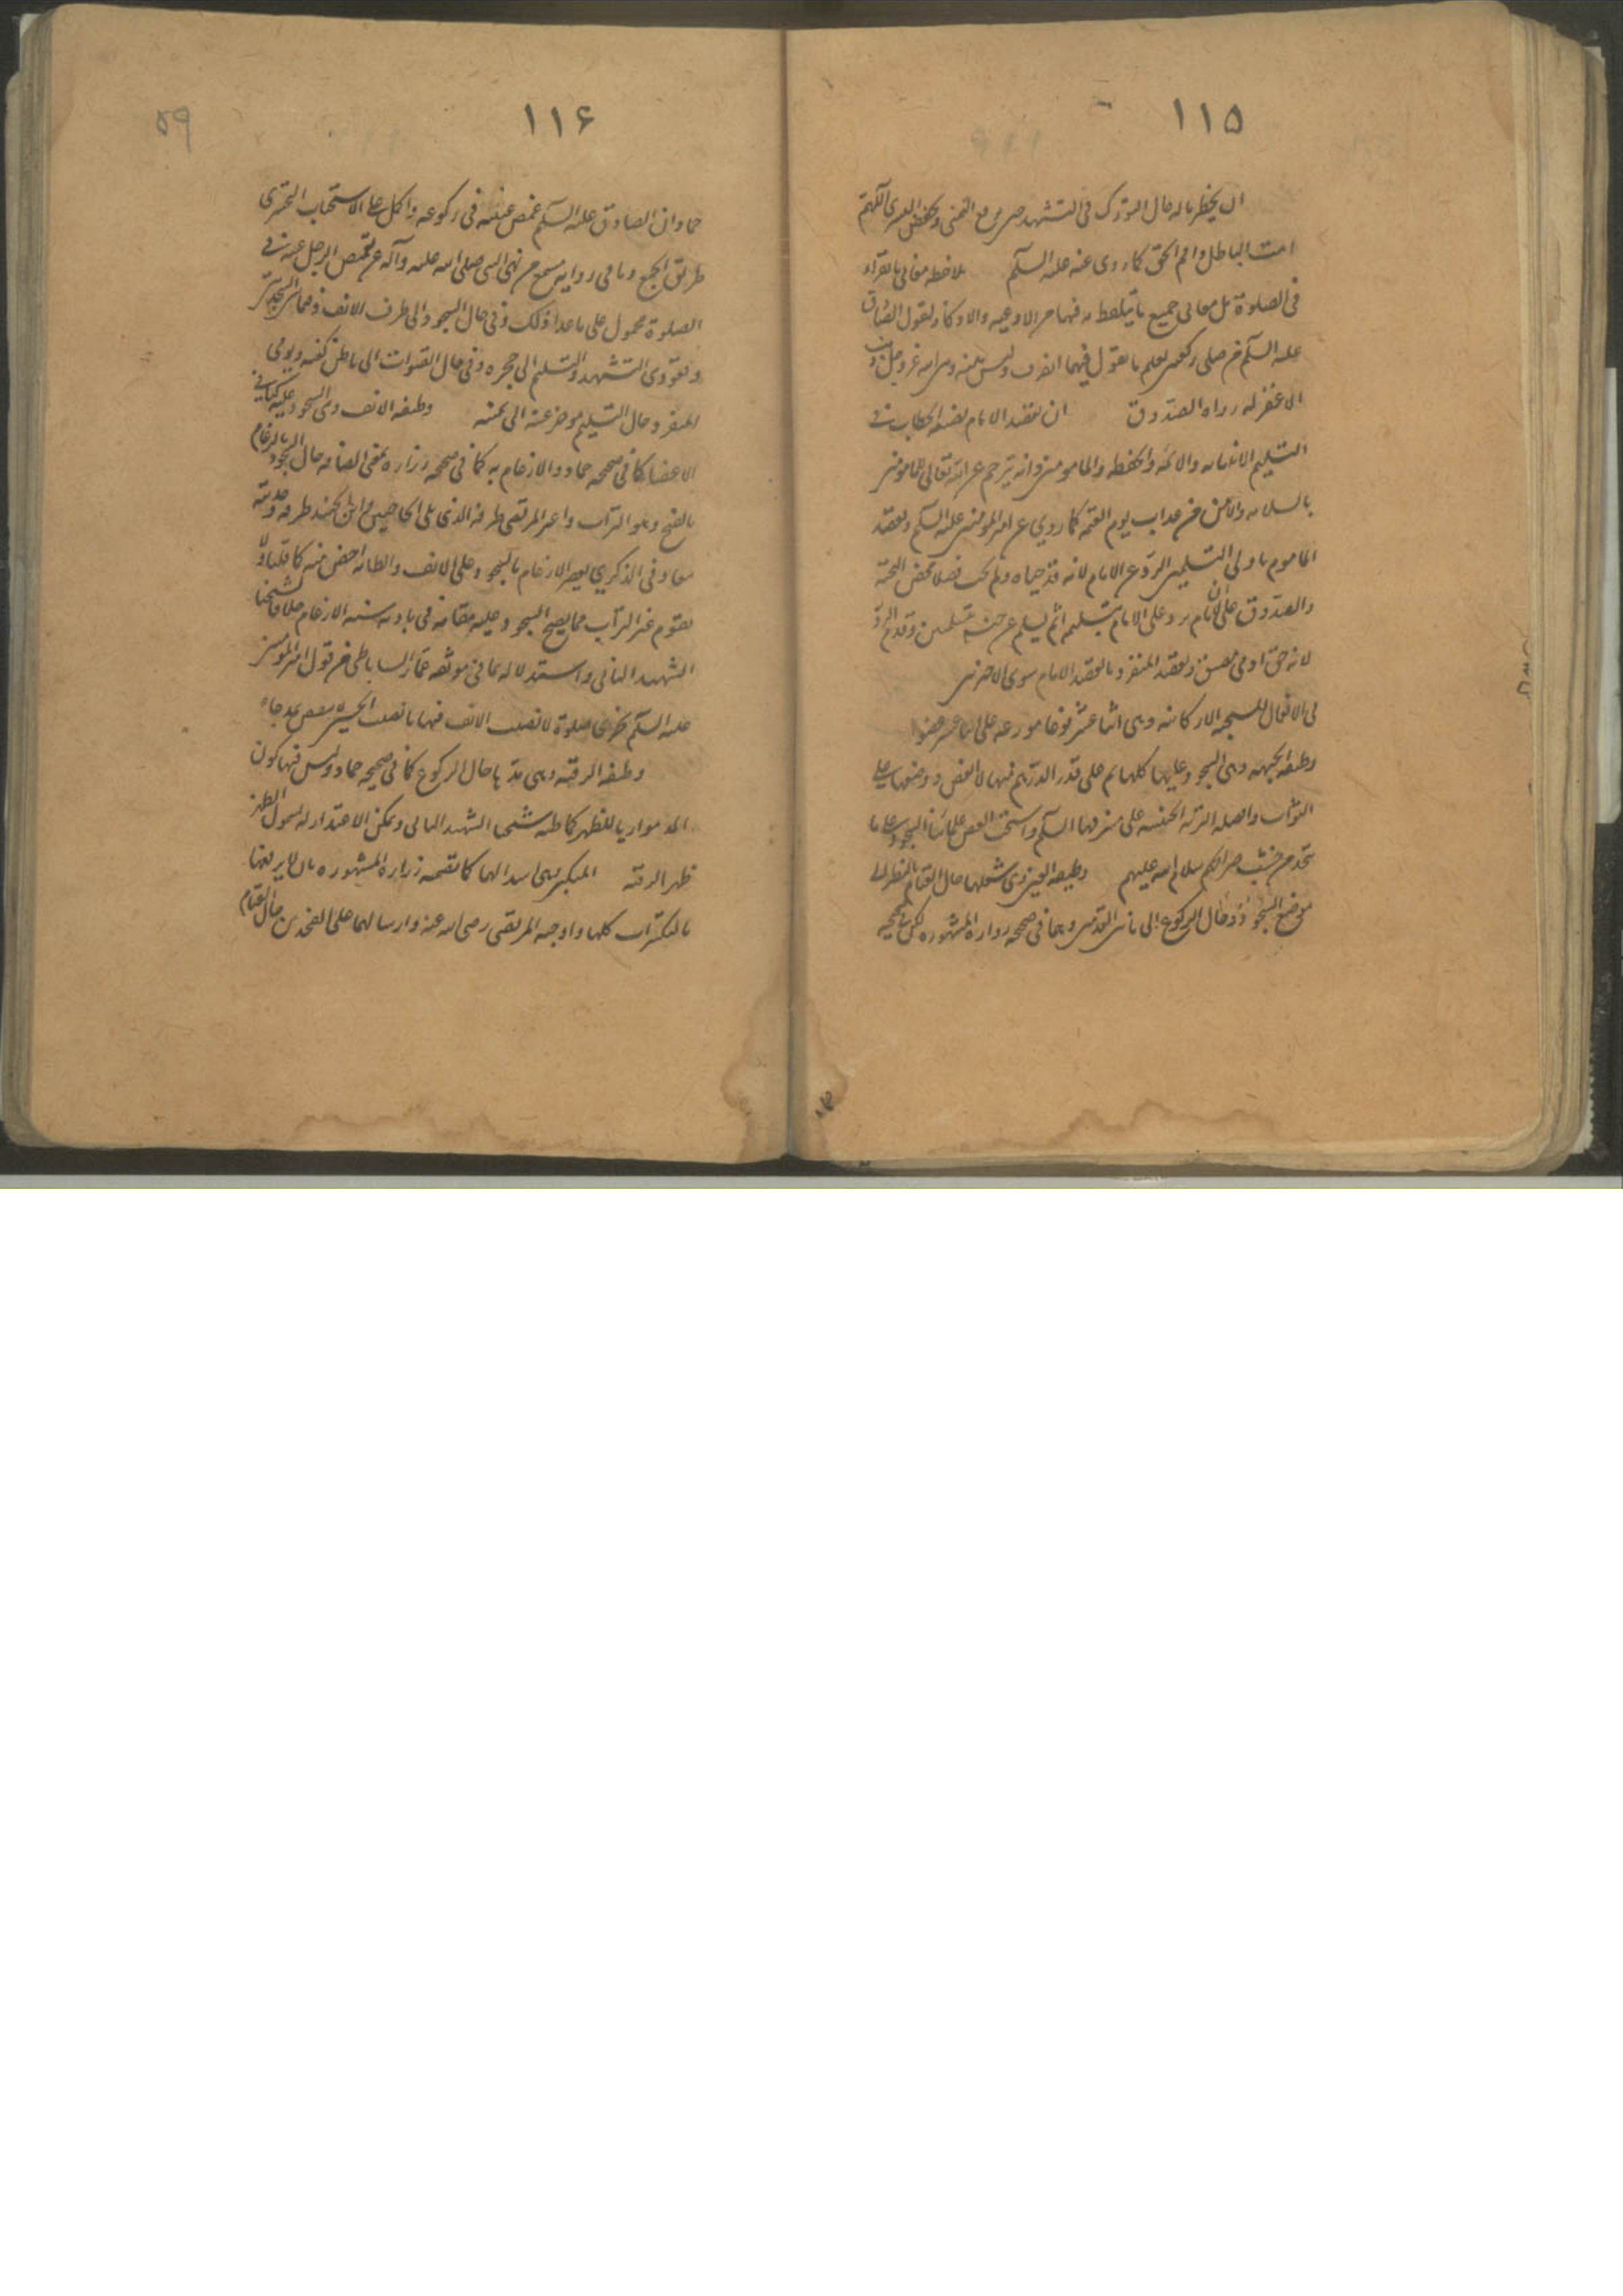 ١١٥
ان يخطر بباله حال التورك في التشهد حين يرفع اليمنى ويخفض اليسرى اللهم
امت الباطل واقم الحق كما روى عنه عليه السلم ملاحظه معاني ما يقرأه
في الصلوة بل معاني جميع ما يتلفظ به فيها من الادعيه والاذكار لقول الصادق
عليه السلم من صلى ركعتين يعلم ما يقول فيهما انصرف وليس بينه وبين الله عز وجل ذنب
الا غفر له رواه الصدوق ان يقصد الامام بصيغه الخطاب في
التسليم الانبياء والائمه والحفظه والمامومين وانه يترجم عن الله تعالى للمامومين
بالسلامه والامن من عذاب يوم القيمه كما روي عن امير المومنين عليه السلم ويقصد
الماموم باولى التسليمتين الرد على الامام لانه قد حياه
والصدوق على ان الامام يرد على الامام بتسليمه ثم يسلم عن جنبيه تسليمتين
لانه حق ادمي ويقصد المنفرد ما يقصد الامام سوى الاخيرين
في الافعال المستحبه الاركانيه وهي اثنا عشر نوعا موزعه على اثنا عشر عضوا
وظيفه الجبهه وهي السجود عليها كلها ثم على قدر الدرهم منها لا انقص ووضعها على
التراب وافضله التربه الحسينيه على مشرفها السلم واستحب بعض علمائنا السجود على ما
يتخذ من خشب ضرائحهم سلام الله عليهم وظيفه العينين وهي شغلهما حال القيام بالنظر الى
موضع السجود وحال الركوع الى ما بين القدمين وهما في صحيحه زراره المشهوره لكن في صحيحه
٥٩
١١۶
حماد ان الصادق عليه السلم غمض عينيه في ركوعه والحمل على الاستحباب التخييري
طريق الجمع وما في روايه مسمع من نهي النبي صلى الله عليه وآله عن تغميض الرجل عينيه في
الصلوة محمول على ما عدا ذلك وفي حال السجود الى طرف الانف وفيما بين السجدتين
وقعودى التشهد والتسليم الى حجره وفي حال القنوت الى باطن كفيه ويومي
المنفرد حال التسليم بمؤخر عينه الى يمينه وظيفه الانف وهي السجود عليه كباقي
الاعضاء كما في صحيحه حماد والارغام به كما في صحيحه زراره بمعنى الصاقه حال السجود بالرغام
بالفتح وهو التراب واعتبر المرتضى طرفه الذي يلي الحاجبين وابن الجنيد طرفه وحدبته
معا وفي الذكري يصير الارغام بالسجود على الانف والظاهر انه اخص منه كما قلناه ولا
يقوم غير التراب مما يصح السجود عليه مقامه في تاديه سنه الارغام خلافا لشيخنا
الشهيد الثاني واستدلاله بما في موثقه عمار الساباطي من قول امير المومنين
عليه السلم لا تجزى صلوة لا يصيب الانف فيها ما يصيب الجبين
وظيفه الرقبه وهي مدها حال الركوع كما في صحيحه حماد وليس فيها كون
المد موازيا للظهر كما ظنه شيخنا الشهيد الثاني ويمكن الاعتذار له بشمول الظهر
ظهر الرقبه المنكبين وهي اسدالهما كما تضمنه زراره المشهوره بان لا يرفعهما
بالتكبيرات كلها واوجبه المرتضى رضى الله عنه وارسالهما على الفخذين حال القيام